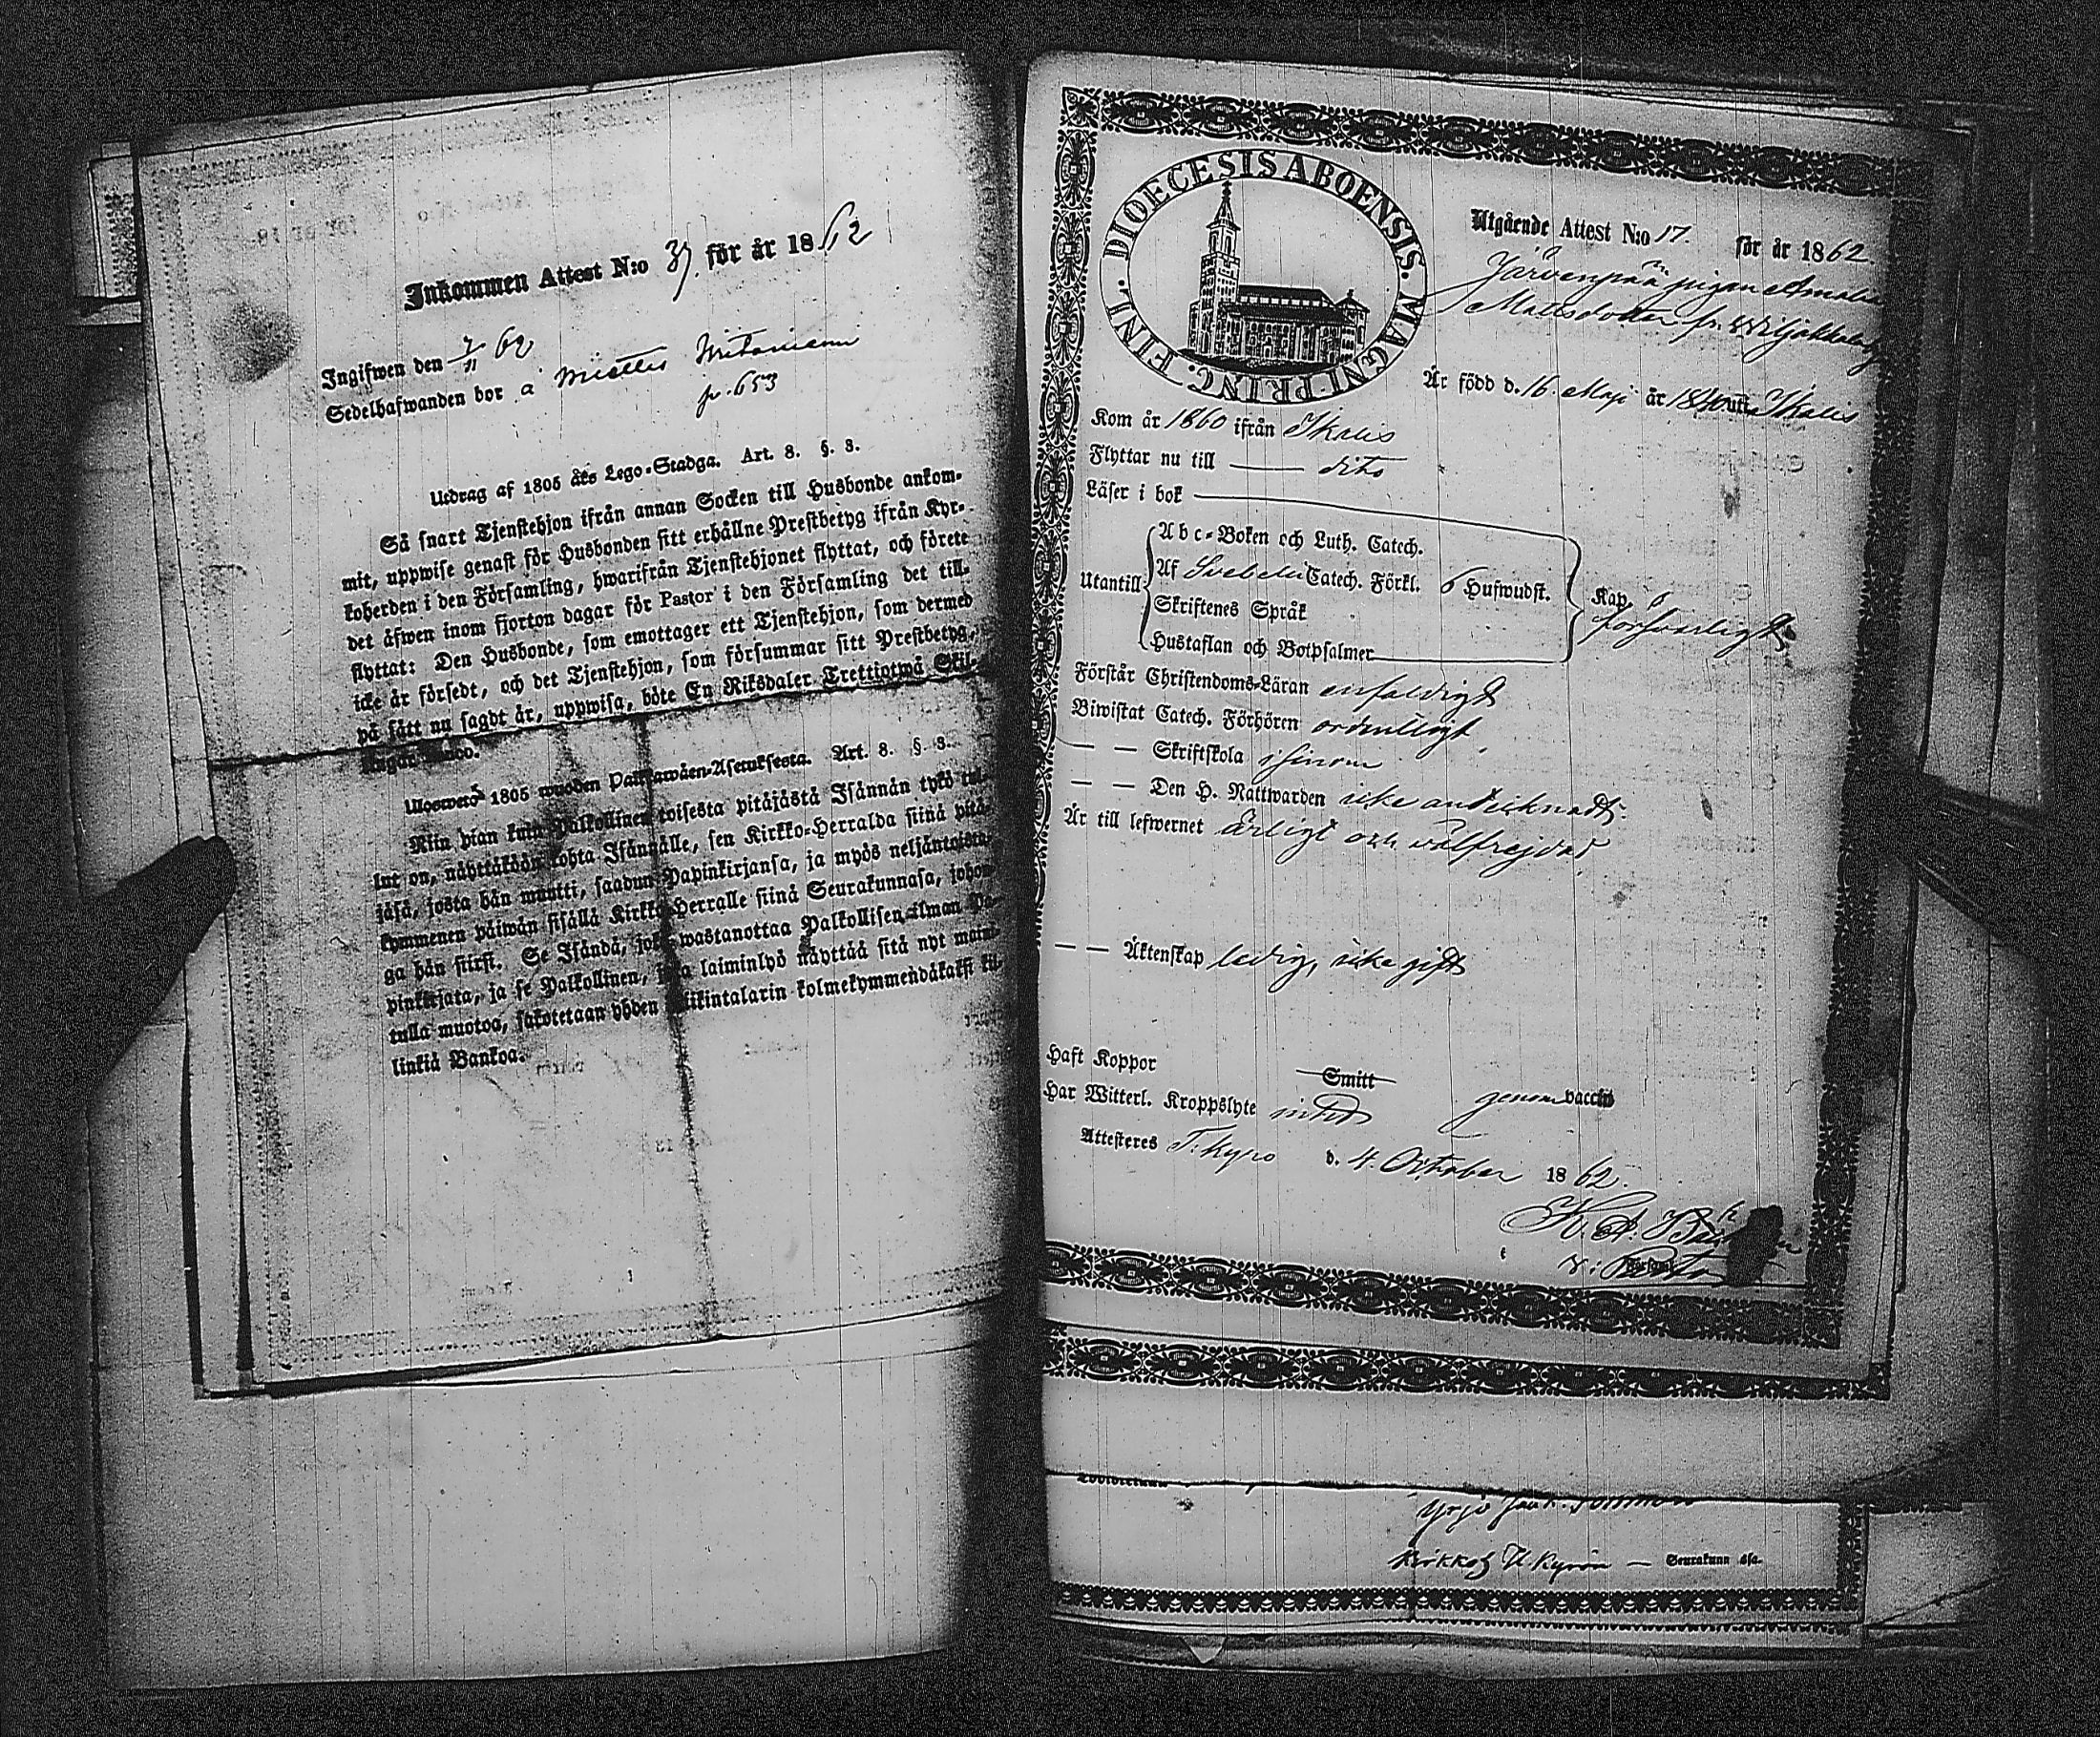 Inkommen Attest N:o 37. för år 1862
Ingifwen den 7/11 62
Sedelhafwanden bor å
p. 653
Utdrag af 1805 års Lego-Stadga. Art. 8. §. 3.
Så snart Tjenstehjon ifrån annan Socken till Husbonde ankom-
mit, uppwise genast för Husbonden sitt erhållne Prestbetyg ifrån Kyr-
koherden i den Församling, hwarifrån Tjenstehjonet flyttat, och förete
det äfwen inom fjorton dagar för Pastor i den Församling det till-
flyttat: Den Husbonde, som emottager ett Tjenstehjon, som dermed
icke är försedt, och det Tjenstehjon, som försummar sitt Prestbetyg,
på sätt nu sagdt är, uppwisa, böte En Riksdaler Trettiotwå Skil-
Banco.
Uloswetö 1805 wuoden Palkkawäen-Asetuksesta. Art. 8. §. 3.
Niin pian kuin Palkollinen toisesta pitäjästä Isännän tykö tul-
lut on, näyttäköön kohta Isännälle, sen Kirkko-Herralda siinä pitä-
jäsä, josta hän muutti, saadun Papinkirjansa, ja myös neljäntoista
kymmenen päiwän sisällä Kirkko-Herralle siinä Seurakunnasa, johon-
ga hän siirsi. Se Isändä, joka wastanottaa Palkollisen ilman Pa-
pinkirjata, ja se Palkollinen, joka laiminlyö näyttää sitä nyt maini-
tulla muotoa, sakotetaan yhden Riikintalarin kolmekymmendäkaksi kil-
linkiä Bankoa.
DIOECESIS ABOENSIS. MAGNI PRINC. FINL.
Utgående Attest N:o 17. för år 1862.
Järvenpää pigan Amalia
Mattsdotter fr. Wiljakkala
Är född d. 16. Maji år 1840 uti Ikalis
Kom år 1860 ifrån Ikalis
Flyttar nu till — dito
Läser i bok
Abc-Boken och Luth. Catech.
Utantill Af Svebelii Catech. Förkl. 6 Hufwudst. Kap.
Skriftenes Språk försvarligt
Hustaflan och Botpsalmer
Förstår Christendoms-Läran enfaldigt
Biwistat Catech. Förhören ordentligt
— — Skriftskola
— — Den H. Nattwarden icke
Är till lefwernet ärligt och välfrejdad
— — Äktenskap ledig, icke gift
Haft Koppor Smitt genom vaccin
Har Witterl. Kroppslyte intet
Attesteres T: Kyro d. 4. October 1862.
Yrjö
Kirkkoh T. Kyrön — Seurakunnasa.